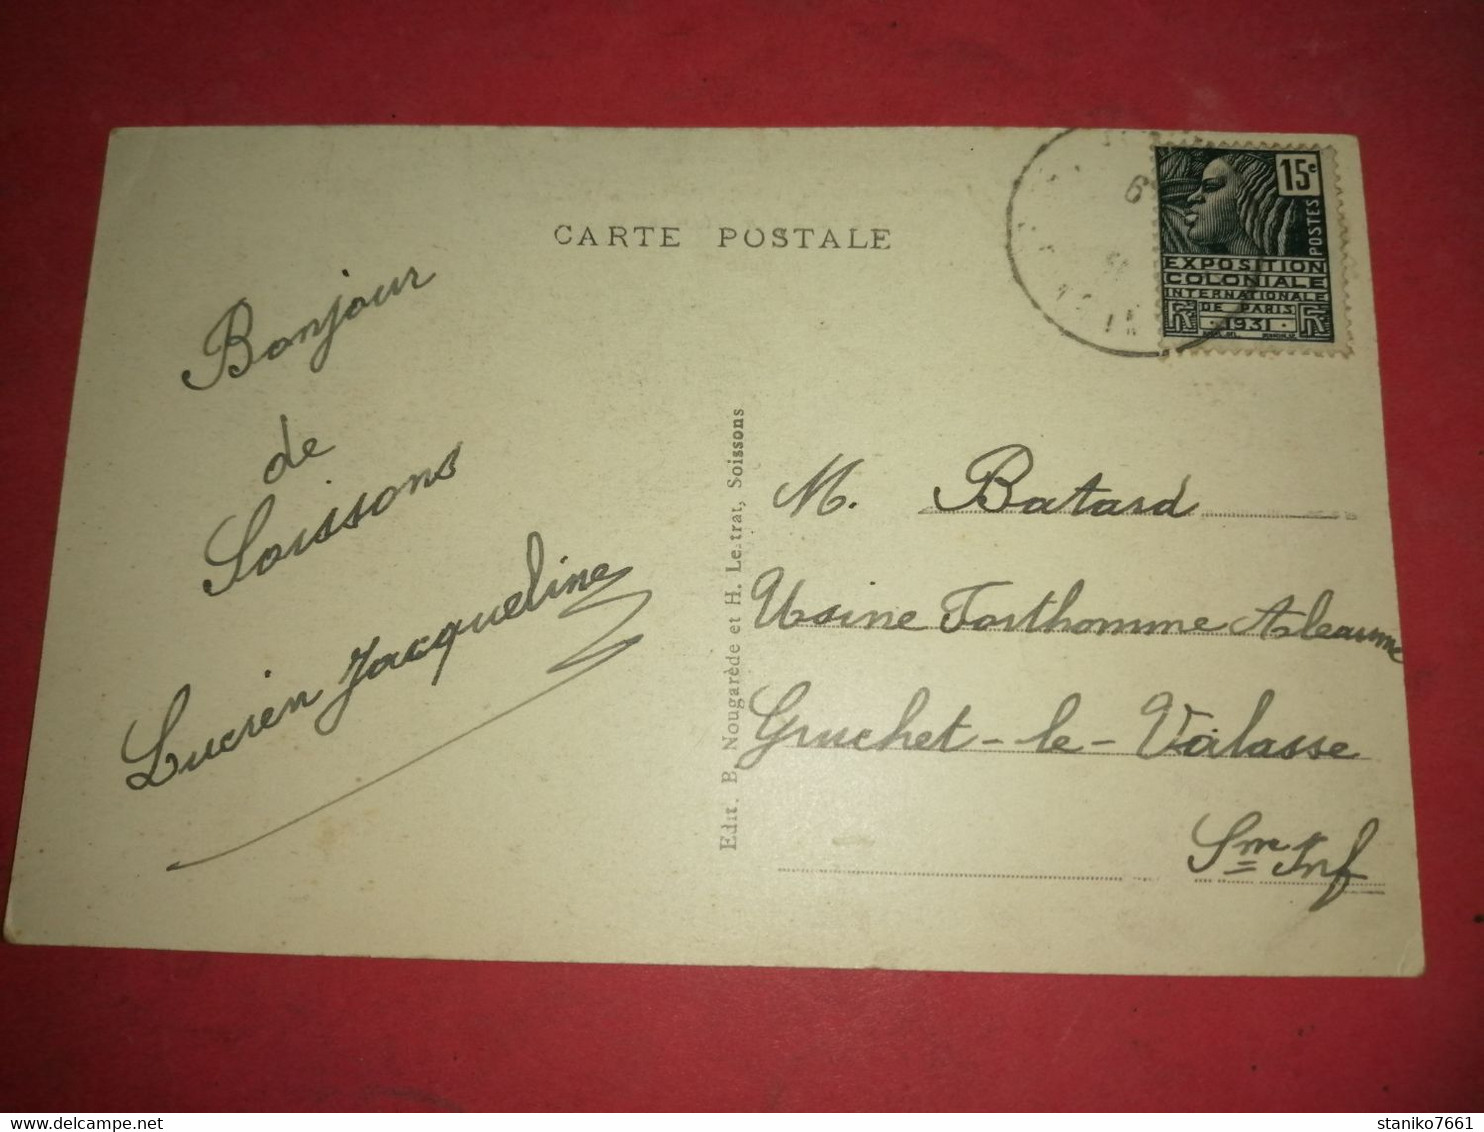 CARTE POSTALE
Bonjour
de
Soissons
Lucien Jacqueline
Edit. B. Nougarède et H. Lestrat, Soissons
15c
POSTES
EXPOSITION
COLONIALE
INTERNATIONALE
DE PARIS
1931
RF RF
M. Batard
Usine Forthomme Alleaume
Gruchet-le-Valasse
Sme Inf
staniko7661